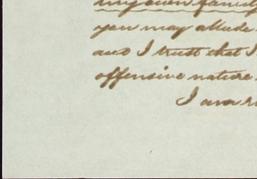 my own family
you may allude
and I trust that I
offensive nature
I am